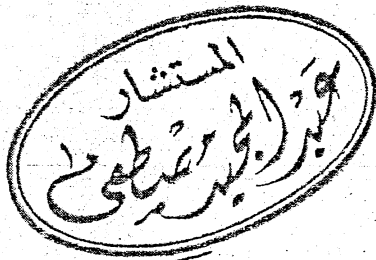 المستشار
عبد المجيد مصطفى